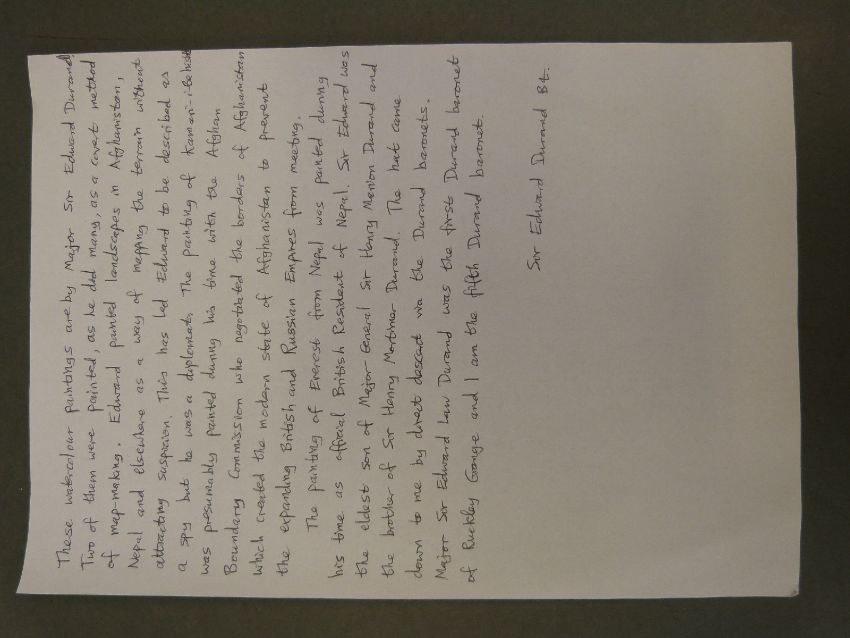 These watercolour paintings are by Major Sir Edward Durand.
Two of them were painted, as he did many, as a covert method
of map-making. Edward painted landscapes in Afghanistan,
Nepal and elsewhere as a way of mapping the terrain without
attracting suspicion. This has led Edward to be described as
a spy but he was a diplomat. The painting of Kamari-i-Behist
was presumably painted during his time with the Afghan
Boundary Commission who negotiated the borders of Afghanistan
which created the modern state of Afghanistan to prevent
the expanding British and Russian Empires from meeting.
The painting of Everest from Nepal was painted during
his time as official British Resident of Nepal. Sir Edward was
the eldest son of Major-General Sir Henry Marion Durand and
the brother of Sir Henry Mortimer Durand. The hat came
down to me by direct descent via the Durand baronets.
Major Sir Edward Law Durand was the first Durand baronet
of Ruckley Grange and I am the fifth Durand baronet.
Sir Edward Durand Bt.